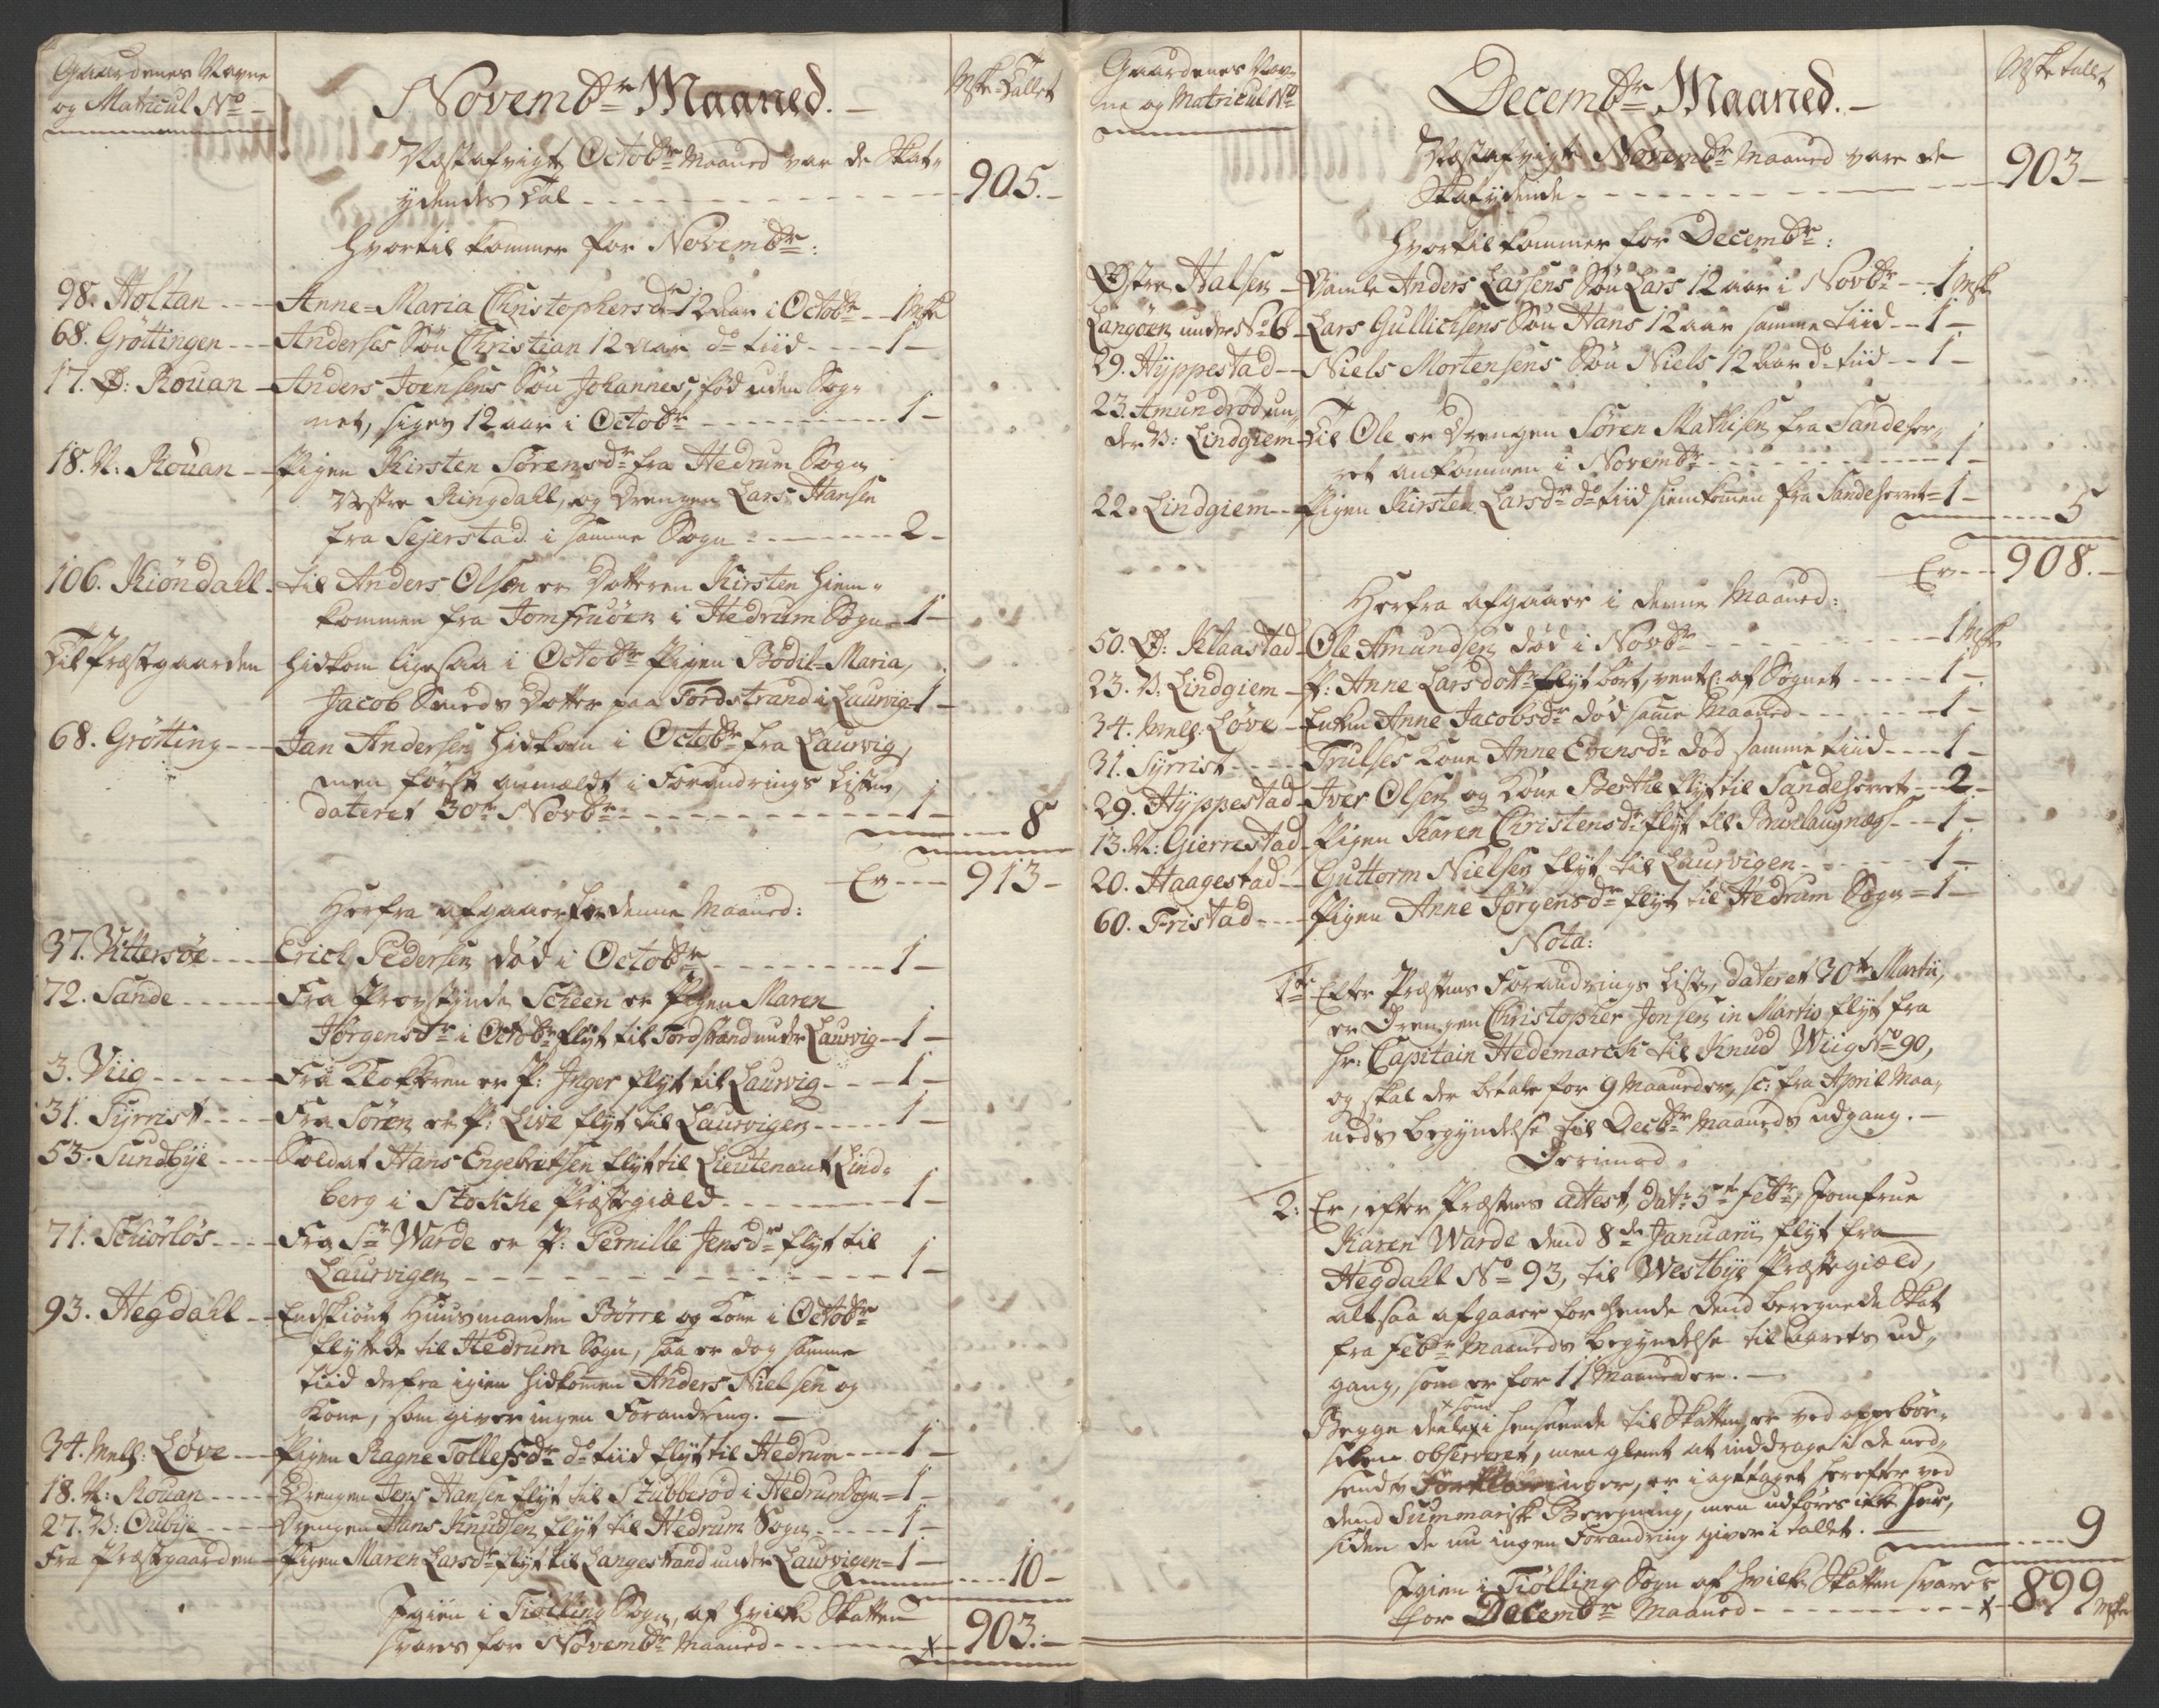 Gaardenes Navne
og Matricul No
Novembr Maaned.
Mske-Tallet
Næstafvigt Octobr Maaned var de Skat-
ydendes Tal 905.
hvortil kommer for Novembr:
98. Holtan Anne-Maria Christophersdr 12 aar i Octobr 1 Mske
68. Gröttingen Anderses Søn Christian 12 aar do tiid 1
17. Ø: Rouan Anders Joensens Søn Johannes, fød uden Sog-
net, siges 12 aar i Octobr 1
18. N: Rouan Pigen Kirsten Sörensdr fra Hedrum Sogn
Vestre Ringdahl, og Drengen Lars Hansen
fra Sejerstad i samme Sogn 2
106. Kiöndahl til Anders Olsen er Datteren Kirsten hiem-
kommen fra Jomfruöen i Hedrum Sogn 1
Til Præstgaarden hidkom ligesaa i Octobr Pigen Bodil-Maria,
Jacob Smeds Datter paa Tordstrand i Laurvig 1
68. Grötting Jan Andersen hidkom i Octobr fra Laurvig,
men först anmældt i Forandrings Listen,
dateret 30te Novbr 1
8
Er 913
Herfra afgaaer for denne Maaned:
37. Vittersöe Erich Pedersen död i Octobr 1
72. Sande Fra Provstinde Scheen er Pigen Maren
Jørgensdr i Octobr flÿt til Tordstrand under Laurvig 1
3. Viig Fra Klokkeren er P: Inger flÿt til Laurvig 1
31. Syrrist Fra Sören er P: Live flÿt til Laurvigen 1
53. Sundbÿe Soldat Hans Engebretsen flÿt til Lieutenant Lind-
berg i Stokke Præstegiæld 1
71. Schiörlös Fra Sr Warde er P: Pernille Jensdr flÿt til
Laurvigen 1
93. Hegdahl Endskiönt Huusmanden Börre og Kone i Octobr
flyttede til Hedrum Sogn, saa er dog samme
tiid derfra igien hidkommen Anders Nielsen og
Kone, som giver ingen Forandring.
34. Mell: Løve Pigen Ragne Tollefsdr do tiid flÿt til Hedrum 1
18. N: Rouan Drengen Jens Hansen flÿt til Stubberöd i Hedrum Sogn 1
27. V: Oubÿe Drengen Hans Knudsen flÿt til Hedrum Sogn 1
Fra Præstgaarden Pigen Maren Larsdr flÿt til Langestrand under Laurvigen 1
10
Igien i Tiølling Sogn, af hvilke Skatten
svares for Novembr Maaned x 903.
Gaardenes Nav-
ne og Matricul No
Decembr Maaned.
Mske tallet
Næstafvigte Novembr Maaned vare de
Skatÿdende 903
hvortil kommer for Decembr:
Østre Halsen Gamle Anders Larsens Søn Lars 12 aar i Novbr 1 Mske
Langöen under No 6 Lars Gullichsens Søn Hans 12 aar samme tiid 1
29. Hÿppestad Niels Mortensens Søn Niels 12 aar do tiid 1
23. Amundröd un-
der V: Lindgiem Til Ole er Drengen Sören Mathisen fra Sandeher-
ret ankommen i Novembr 1
22. Lindgiem Pigen Kirsten Larsdr do tiid hiemkommen fra Sandeherret 1
5
Er 908.
Herfra afgaaer i denne Maaned:
50. Ø: Klaastad Ole Amundsen död i Novbr 1 Mske
23. V: Lindgiem P: Anne Larsdottr flÿt bort, ventl: af Sognet 1
34. Mell: Løve Enken Anne Jacobsdr död samme Maaned 1
31. Syrrist Trulses Kone Anne Evensdr död samme tiid 1
29. Hÿppestad Iver Olsen og Kone Berthe flÿt til Sandeherret 2
13. N: Gierrestad Pigen Karen Christensdr flÿt til Brunlaugnæss 1
20. Haagestad Guttorm Nielsen flÿt til Laurvigen 1
60. Fristad Pigen Anne Jörgensdr flÿt til Hedrum Sogn 1
Nota:
1te Efter Præstens Forandrings Liste, dateret 30te Martii,
er Drengen Christopher Jonsen in Martio flÿt fra
Hr: Capitain Hedemarck til Knud Wiig No 90,
og skal der betale for 9 Maaneder, sc: fra April Maa-
neds begyndelse til Decbr Maaneds udgang.
Derimod
2: Er, efter Præstens attest, datr 5te Febr, Jomfrue
Karen Warde dend 8de Januarii flÿt fra
Hegdahl No 93, til Westbÿe Præstegiæld,
altsaa afgaaer for hende dend beregnede Skat
fra Febr Maaneds begyndelse til aarets ud-
gang, som er for 11 Maaneder.
Begge deele x som i henseende til Skatten, er ved oppebör-
selen observeret, men glemt at inddrages i de ned-
sendte Forklaringer, er iagttaget herefter ved
dend Summarisk Beregning, men udföres ikke her,
siden de nu ingen Forandring giver i tallet.
9
Igien i Tiølling Sogn af hvilke Skatten svares
for Decembr Maaned x 899 Mske